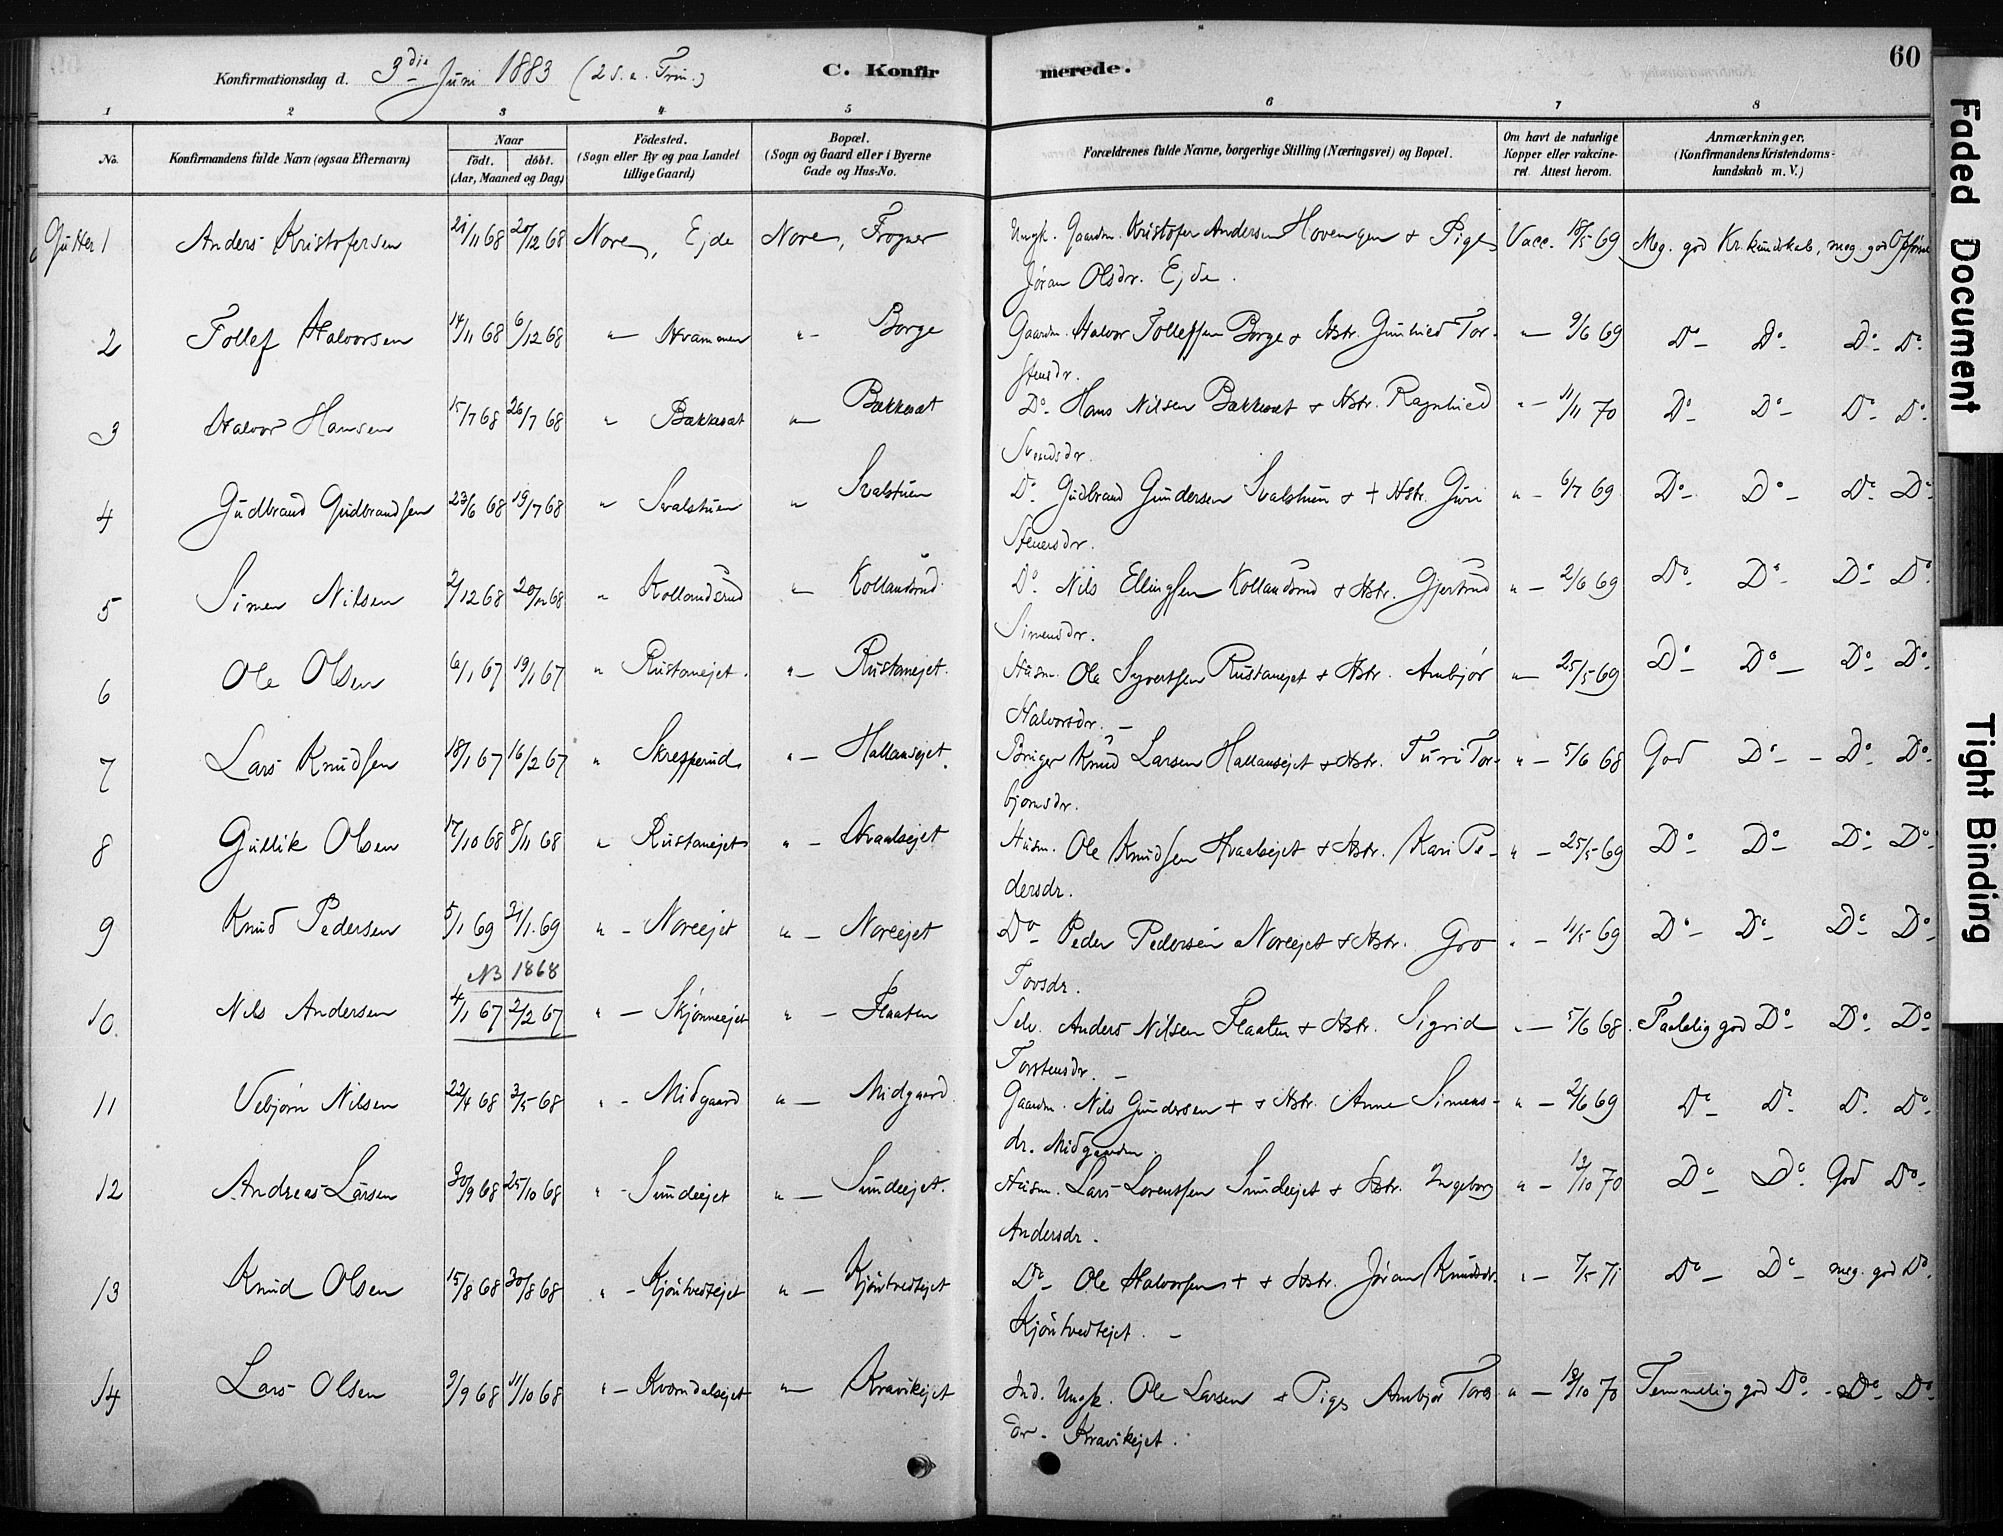 60
Konfirmationsdag d. 3die Juni 1883 (2 S. e. Trin.) C. Konfirmerede.
1 2 3 4 5 6 7 8
No. Konfirmandens fulde Navn (ogsaa Efternavn) Naar födt. döbt. (Aar, Maaned og Dag) Födested. (Sogn eller By og paa Landet tillige Gaard) Bopæl. (Sogn og Gaard eller i Byerne Gade og Hus-No. Forældrenes fulde Navne, borgerlige Stilling (Næringsvei) og Bopæl. Om havt de naturlige Kopper eller vakcineret Attest herom. Anmærkninger. (Konfirmandens Kristendomskundskab m. V.)
Gutter 1 Anders Kristofersen 21/11 68 20/12 68 Nore, Ejde Nore, Frogner Ungk. Gaardm. Kristofer Andersen Hovengen & Pige Vacc. 18/5 69 Meg. god Kr.kundskab, meg. god Opførsel
Jøran Olsdr. Ejde.
2 Tollef Halvorsen 14/11 68 6/12 68 " Hvammen " - Borge Gaardm. Halvor Tollefsen Borge & Hstr. Gunhild Tor- " 9/6 69 Do - Do - Do - Do
stensdr.
3 Halvor Hansen 15/7 68 26/7 68 " Bakkesæt " Bakkesæt Do - Hans Nilsen Bakkesæt & Hstr. Ragnhild " - 11/11 70 Do - Do - Do - Do
Svendsdr.
4 Gudbrand Gudbrandsen 23/6 68 19/7 68 " Svalstuen " Svalstuen Do. Gudbrand Gundersen Svalstuen & + Hstr. Guri " - 6/7 69 Do - Do - Do - Do -
Steversdr.
5 Simen Nilsen 2/12 68 20/12 68 " Kollandsrud " Kollandsrud Do. Nils Ellingsen Kollandsrud & Hstr. Gjertrud " - 2/6 69 Do - Do - Do - Do
Simensdr.
6 Ole Olsen 6/1 67 19/1 67 " Rustanejet. " - Rustanejet. Husm. Ole Syvertsen Rustanejet & Hstr. Anbjør " - 25/5 69 Do - Do - Do - Do -
Halvorsdr. -
7 Lars Knudsen 18/1 67 16/2 67 " Skrepperud " - Hallandsejet. Bruger Knud Larsen Hallansejet & Hstr. Turi Tor- " - 5/6 68 God Do - - Do - Do -
bjørnsdr.
8 Gullik Olsen 17/10 68 8/11 68 " Rustanejet " - Hvaalsejet Husm. Ole Knudsen Hvaalsejet & Hstr. Kari Pe- " - 25/5 69 Do - Do - Do - Do -
dersdr.
9 Knud Pedersen 5/1 69 31/1 69 " - Noreejet " - Noreejet Do - Peder Pedersen Noreejet & Hstr. Gro " - 4/5 69 Do - Do - Do - Do -
NB 1868 Tovsdr.
10. Nils Andersen 4/1 67 2/2 67 " - Skjønneejet " - Flaaten Selv. Anders Nilsen Flaaten & Hstr. Sigrid " - 5/6 68 Taalelig god Do - Do - Do -
Torstensdr. -
11 Vebjørn Nilsen 22/4 68 3/5 68 " - Midgaard " - Midgaard Gaardm. Nils Gundersen + & Hstr. Anne Simens- " - 2/6 69 Do - Do - Do Do -
dr. Midgaarden.
12 Andreas Larsen 30/9 68 25/10 68 " - Sundeejet " - Sundeejet. Husm. Lars Lorentsen Sundeejet & Hstr. Ingeborg " - 12/10 70 Do - Do - God Do -
Andersdr.
13 Knud Olsen 15/8 68 30/8 68 " - Kjöntvedtejet " - Kjöntvedtejet Do - Ole Halvorsen + & Hstr. Jøran Knudsdr. " - 7/5 71 Do - Do - meg. god Do.
Kjöntvedtejet. -
14 Lars Olsen 9/9 68 11/10 68 " - Kvarndalsejet " - Kravikejet Ind. Ungk. Ole Larsen & Pige Anbjør Tores- " - 12/10 70 Temmelig god Do - Do - Do -
dr. Kravikejet.
Faded Document
Tight Binding